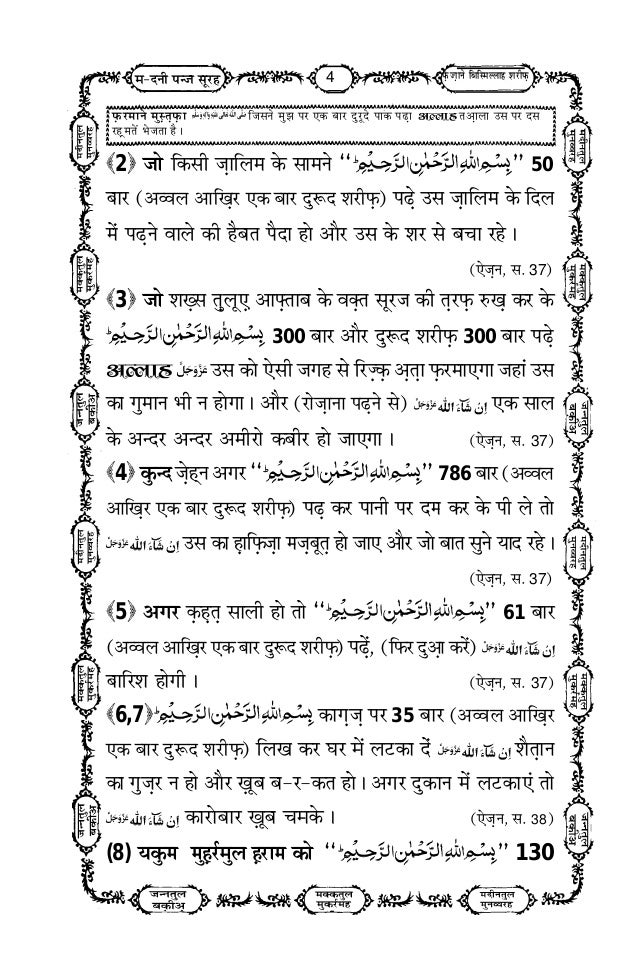 म-दनी पन्ज सूरह
4
फ़ैज़ाने बिस्मिल्लाह शरीफ़
फ़रमाने मुस्त़फ़ा صلى الله تعالى عليه واله وسلم जिसने मुझ पर एक बार दुरूदे पाक पढ़ा अल्लाह तआ़ला उस पर दस
रह़मतें भेजता है।
﴾2﴿ जो किसी ज़ालिम के सामने ‘‘بِسْمِ اللّٰهِ الرَّحْمٰنِ الرَّحِيْمِ’’ 50
बार (अव्वल आख़िर एक बार दुरूद शरीफ़) पढ़े उस ज़ालिम के दिल
में पढ़ने वाले की हैबत पैदा हो और उस के शर से बचा रहे।
(ऐज़न, स. 37)
﴾3﴿ जो शख़्स त़ुलूए आफ़्ताब के वक़्त सूरज की त़रफ़ रुख़ कर के
بِسْمِ اللّٰهِ الرَّحْمٰنِ الرَّحِيْمِ 300 बार और दुरूद शरीफ़ 300 बार पढ़े
अल्लाह عَزَّوَجَلَّ उस को ऐसी जगह से रिज़्क़ अ़त़ा फ़रमाएगा जहां उस
का गुमान भी न होगा। और (रोज़ाना पढ़ने से) اِنْ شَآءَ اللّٰه عَزَّوَجَلَّ एक साल
के अन्दर अन्दर अमीरो कबीर हो जाएगा।
(ऐज़न, स. 37)
﴾4﴿ कुन्द ज़ेहन अगर ‘‘بِسْمِ اللّٰهِ الرَّحْمٰنِ الرَّحِيْمِ’’ 786 बार (अव्वल
आख़िर एक बार दुरूद शरीफ़) पढ़ कर पानी पर दम कर के पी ले तो
اِنْ شَآءَ اللّٰه عَزَّوَجَلَّ उस का ह़ाफ़िज़ा मज़बूत़ हो जाए और जो बात सुने याद रहे।
(ऐज़न, स. 37)
﴾5﴿ अगर क़ह़त़ साली हो तो ‘‘بِسْمِ اللّٰهِ الرَّحْمٰنِ الرَّحِيْمِ’’ 61 बार
(अव्वल आख़िर एक बार दुरूद शरीफ़) पढ़ें, (फिर दुआ़ करें) اِنْ شَآءَ اللّٰه عَزَّوَجَلَّ
बारिश होगी।
(ऐज़न, स. 37)
﴾6,7﴿ بِسْمِ اللّٰهِ الرَّحْمٰنِ الرَّحِيْمِ काग़ज़ पर 35 बार (अव्वल आख़िर
एक बार दुरूद शरीफ़) लिख कर घर में लटका दें اِنْ شَآءَ اللّٰه عَزَّوَجَلَّ शैत़ान
का गुज़र न हो और ख़ूब ब-र-कत हो। अगर दुकान में लटकाएं तो
اِنْ شَآءَ اللّٰه عَزَّوَجَلَّ कारोबार ख़ूब चमके।
(ऐज़न, स. 38)
(8) यकुम मुह़र्रमुल ह़राम को ‘‘بِسْمِ اللّٰهِ الرَّحْمٰنِ الرَّحِيْمِ’’ 130
मदीनतुल मुनव्वरह
मक्कतुल मुकर्रमह
जन्नतुल बक़ीअ़
मदीनतुल मुनव्वरह
मक्कतुल मुकर्रमह
जन्नतुल बक़ीअ़
मदीनतुल मुनव्वरह
मक्कतुल मुकर्रमह
जन्नतुल बक़ीअ़
मदीनतुल मुनव्वरह
मक्कतुल मुकर्रमह
जन्नतुल बक़ीअ़
जन्नतुल बक़ीअ़
मक्कतुल मुकर्रमह
मदीनतुल मुनव्वरह